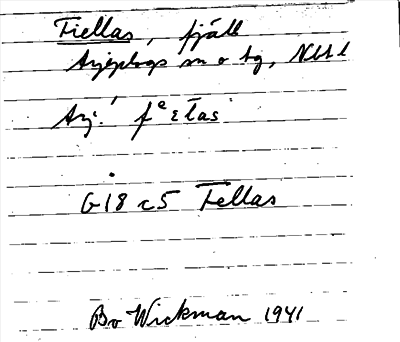 Fiellas, fjäll
Arjeplogs sn o tg, Nbt l
Arj. fᵉεlas
G18 c5 Fellas
Bo Wickman 1941